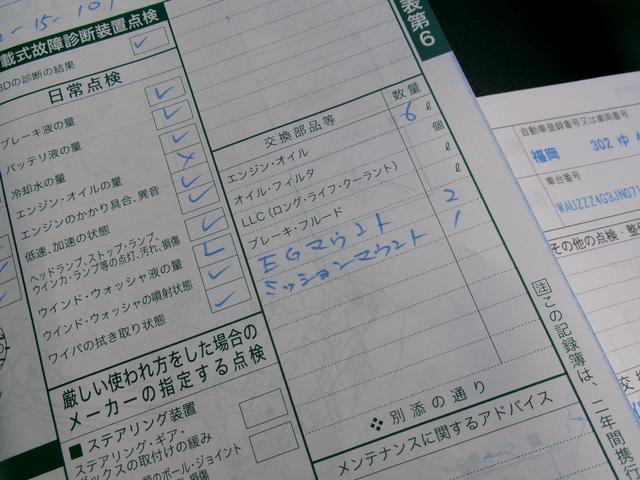 -15-10
載式故障診断装置点検
の診断の結果
日常点検
ブレーキ液の量
バッテリ液の量
冷却水の量
エンジン・オイルの量
エンジンのかかり具合、異音
低速、加速の状態
ヘッドランプ、ストップ・ランプ、
ウインカ・ランプ等の点灯、汚れ、損傷
ウインド・ウォッシャ液の量
ウインド・ウォッシャの噴射状態
ワイパの拭き取り状態
厳しい使われ方をした場合の
メーカーの指定する点検
■ステアリング装置
ステアリング・ギヤ・
ボックスの取付けの緩み
のボール・ジョイント
損傷
表第6
交換部品等 数量
エンジン・オイル 6 ℓ
オイル・フィルタ 個
LLC(ロング・ライフ・クーラント) ℓ
ブレーキ・フルード ℓ
EGマウント 2
ミッションマウント 1
❖別添の通り
メンテナンスに関するアドバイス
注この記録簿は、二年間携行
自動車登録番号又は車両番号
福岡 302 ゆ
車台番号
WAUZZZ4G3JN07
その他の点検・整
交換